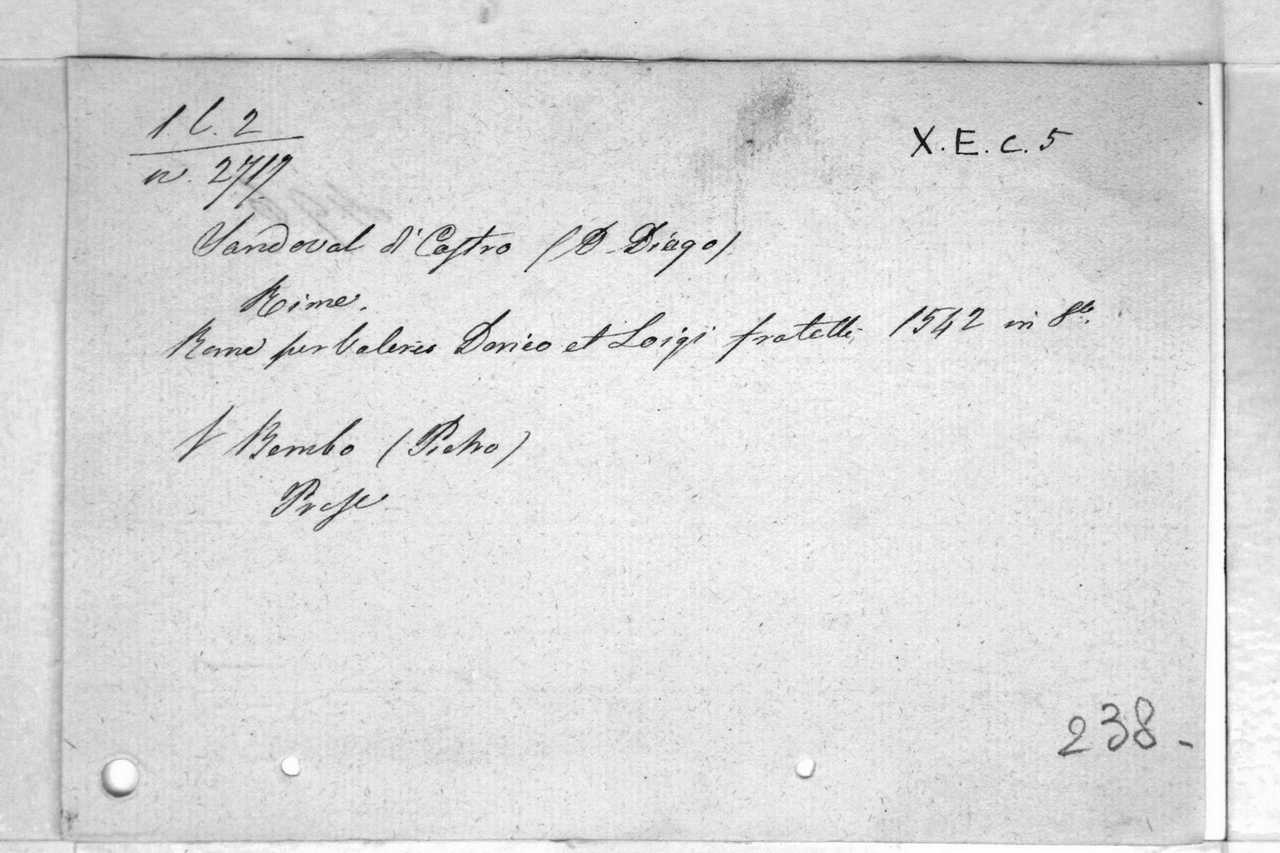 1 l. 2
X. E. c. 5
n. 2717
Sandoval di Castro (D. Diego)
Rime.
Roma per Valerio Dorico et Loigi fratelli, 1542 in 8º.
Bembo (Pietro)
Prose
238-